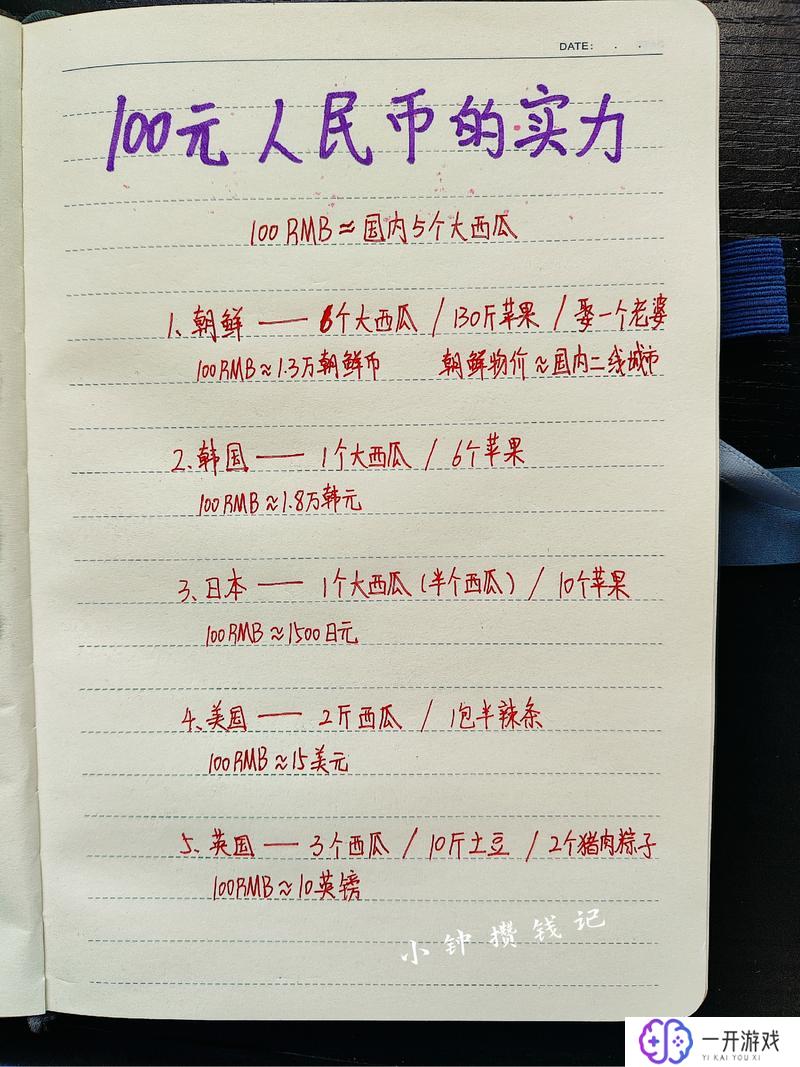 DATE: . .
100元人民币的实力
100 RMB≈国内5个大西瓜
1、朝鲜 —— 6个大西瓜 / 130斤苹果 / 娶一个老婆
100RMB≈1.3万朝鲜币 朝鲜物价≈国内二线城市
2、韩国 —— 1个大西瓜 / 6个苹果
100RMB≈1.8万韩元
3、日本 —— 1个大西瓜(半个西瓜) / 10个苹果
100RMB≈1500日元
4、美国 —— 2斤西瓜 / 1包半辣条
100RMB≈15美元
5、英国 —— 3个西瓜 / 10斤土豆 / 2个猪肉粽子
100RMB≈10英镑
小钟攒钱记
一开游戏
YI KAI YOU XI